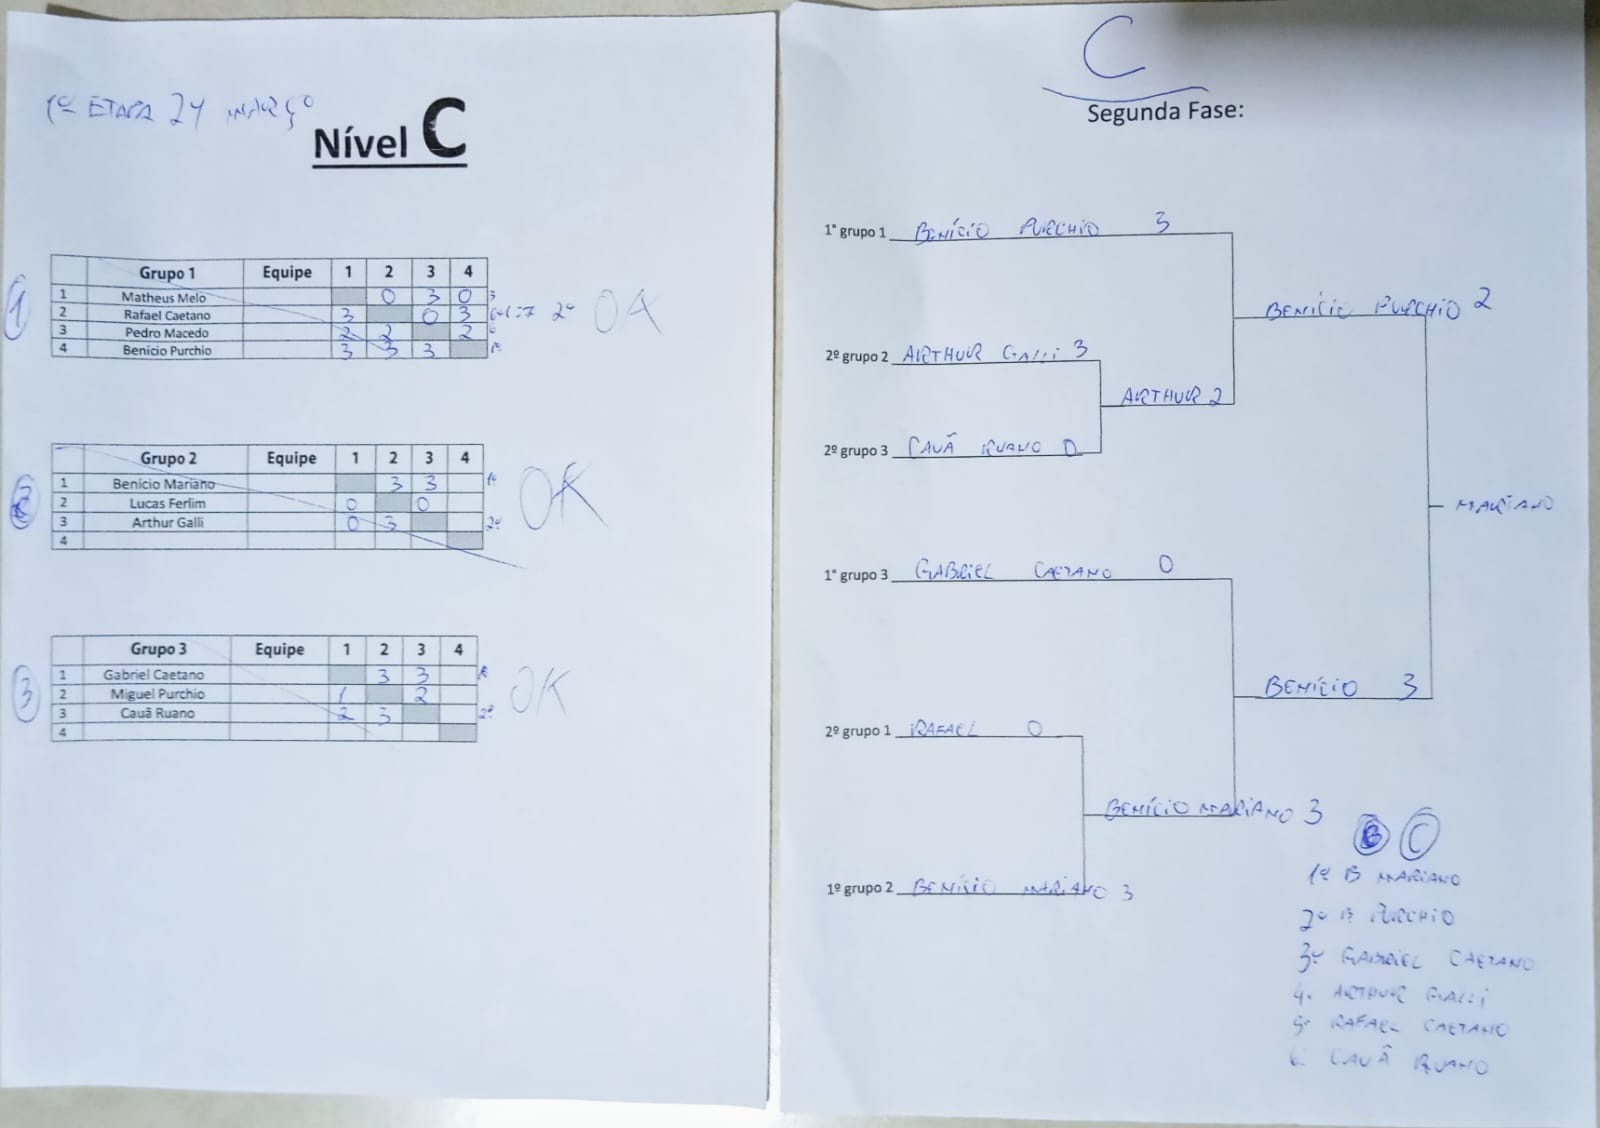 1ª ETAPA 24 MARÇO
Nível C
1
Grupo 1 Equipe 1 2 3 4
1 Matheus Melo 0 3 0 3
2 Rafael Caetano 3 0 3 6+1=7 2º OK
3 Pedro Macedo 2 2 2 6
4 Benício Purchio 3 3 3 1º
2
Grupo 2 Equipe 1 2 3 4
1 Benício Mariano 3 3 1º
2 Lucas Ferlim 0 0 OK
3 Arthur Galli 0 3 2º
4
3
Grupo 3 Equipe 1 2 3 4
1 Gabriel Caetano 3 3 1º
2 Miguel Purchio 1 2 OK
3 Cauã Ruano 2 3 2º
4
C
Segunda Fase:
1° grupo 1 BENÍCIO PURCHIO 3
BENÍCIO PURCHIO 2
2º grupo 2 ARTHUR GALLI 3
ARTHUR 2
2º grupo 3 CAUÃ RUANO 0
MARIANO
1° grupo 3 GABRIEL CAETANO 0
BENÍCIO 3
2º grupo 1 RAFAEL 0
BENÍCIO MARIANO 3
1º grupo 2 BENÍCIO MARIANO 3
C
1º B MARIANO
2º B PURCHIO
3º GABRIEL CAETANO
4º ARTHUR GALLI
5º RAFAEL CAETANO
6 CAUÃ RUANO